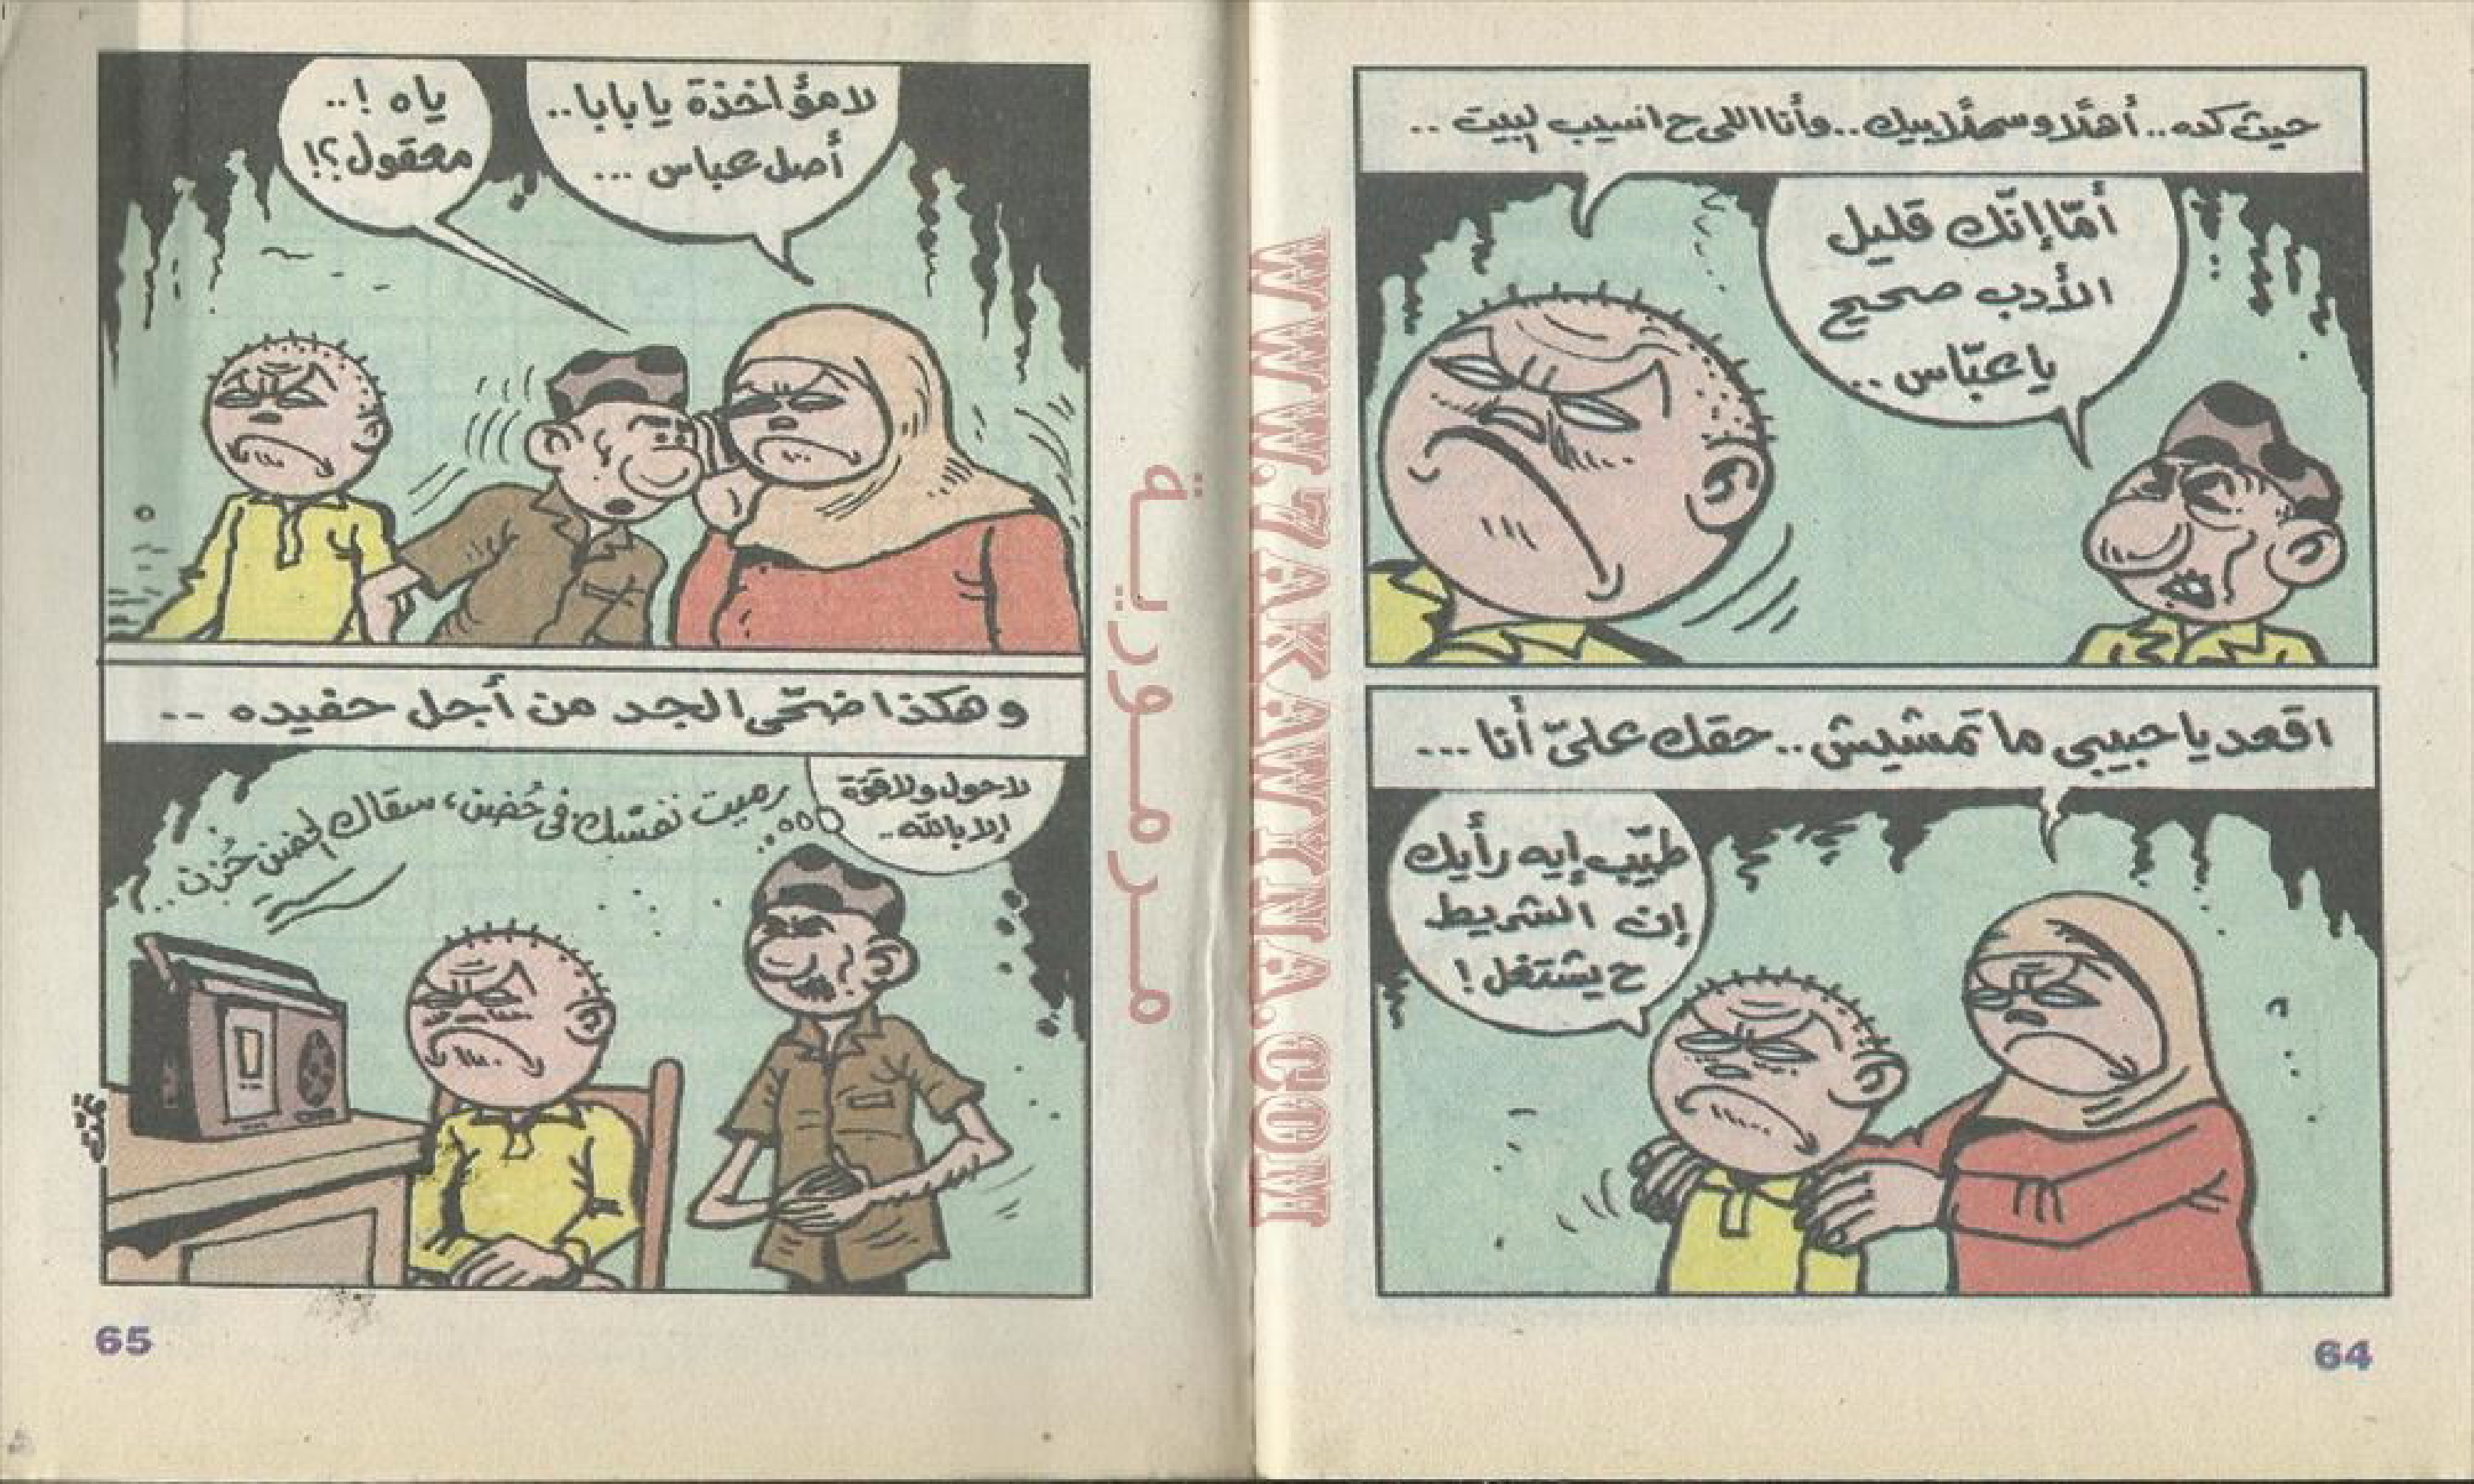 حيث كده.. أهلاً وسهلاً بيك.. وأنا اللى ح انسيب البيت ..
أمّا إنّك قليل
الأدب صحيح
يا عبّاس ..
اقعد يا حبيبى ما تمشيش.. حقك علىّ أنا ...
طيّب إيه رأيك
إن الشريط
ح يشتغل !
64
WWW.7AKAWYINA.COM
مرمورية
لا مؤاخذة يا بابا..
أصل عباس ...
ياه !..
معقول؟!
وهكذا ضحّى الجد من أجل حفيده ..
لا حول ولا قوّة
إلا بالله..
رميت نفسّك فى حُضن، سقاك الحضن حُزن..
65